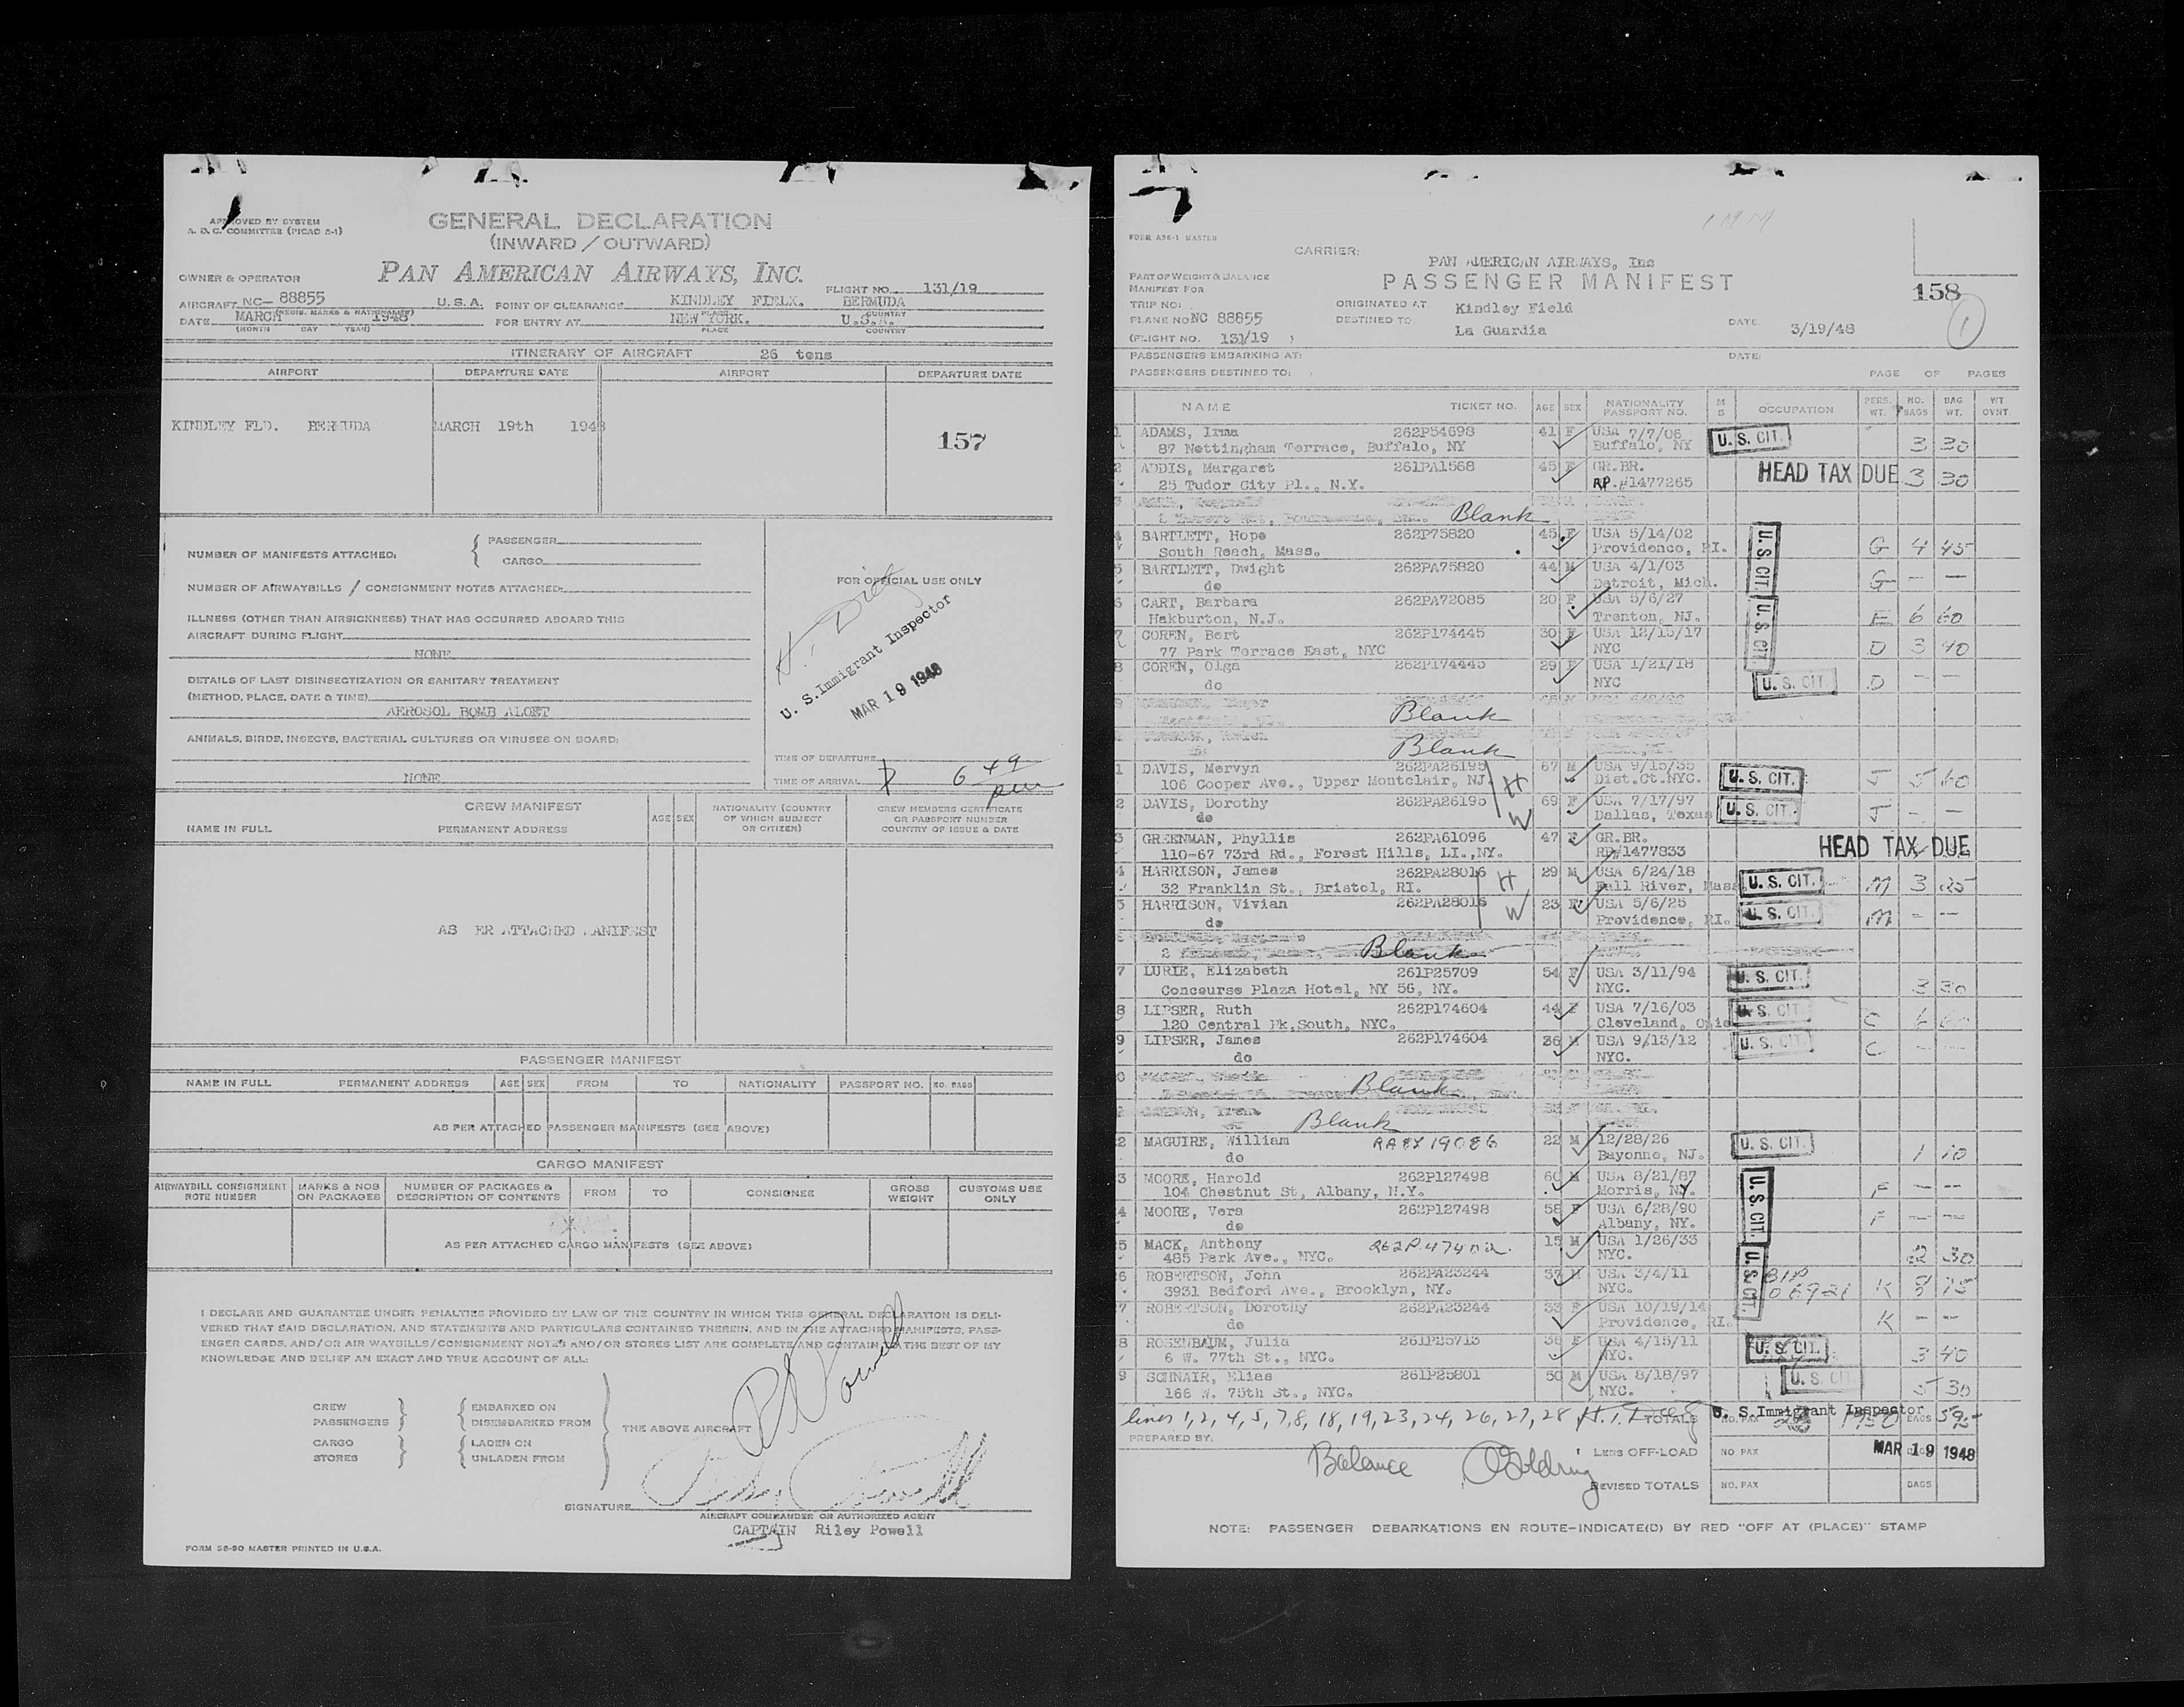 APPROVED BY SYSTEM
A. D. C. COMMITTEE (PICAO 2-1)
GENERAL DECLARATION
(INWARD / OUTWARD)
PAN AMERICAN AIRWAYS, INC.
OWNER & OPERATOR
FLIGHT NO. 131/19
AIRCRAFT NC- 88855 U.S.A. POINT OF CLEARANCE KINDLEY FIELK. BERMUDA
(REGIS. MARKS & NATIONALITY) PLACE COUNTRY
DATE MARCH 1948 FOR ENTRY AT NEW YORK. U.S.A.
(MONTH DAY YEAR) PLACE COUNTRY
ITINERARY OF AIRCRAFT 26 tons
AIRPORT DEPARTURE DATE AIRPORT DEPARTURE DATE
KINDLEY FLD. BERMUDA MARCH 19th 1948
157
NUMBER OF MANIFESTS ATTACHED: { PASSENGER
CARGO
NUMBER OF AIRWAYBILLS / CONSIGNMENT NOTES ATTACHED:
ILLNESS (OTHER THAN AIRSICKNESS) THAT HAS OCCURRED ABOARD THIS
AIRCRAFT DURING FLIGHT
NONE
DETAILS OF LAST DISINSECTIZATION OR SANITARY TREATMENT
(METHOD, PLACE, DATE & TIME)
AEROSOL BOMB ALOET
ANIMALS, BIRDS, INSECTS, BACTERIAL CULTURES OR VIRUSES ON BOARD:
NONE
FOR OFFICIAL USE ONLY
U. S. Immigrant Inspector
MAR 19 1948
TIME OF DEPARTURE
TIME OF ARRIVAL 6 49 pm
CREW MANIFEST
NAME IN FULL PERMANENT ADDRESS AGE SEX NATIONALITY (COUNTRY OF WHICH SUBJECT OR CITIZEN) CREW MEMBERS CERTIFICATE OR PASSPORT NUMBER COUNTRY OF ISSUE & DATE
AS ER ATTACHED MANIFEST
PASSENGER MANIFEST
NAME IN FULL PERMANENT ADDRESS AGE SEX FROM TO NATIONALITY PASSPORT NO. NO. BAGS
AS PER ATTACHED PASSENGER MANIFESTS (SEE ABOVE)
CARGO MANIFEST
AIRWAYBILL CONSIGNMENT NOTE NUMBER MARKS & NOS ON PACKAGES NUMBER OF PACKAGES & DESCRIPTION OF CONTENTS FROM TO CONSIGNEE GROSS WEIGHT CUSTOMS USE ONLY
AS PER ATTACHED CARGO MANIFESTS (SEE ABOVE)
I DECLARE AND GUARANTEE UNDER PENALTIES PROVIDED BY LAW OF THE COUNTRY IN WHICH THIS GENERAL DECLARATION IS DELI-
VERED THAT SAID DECLARATION, AND STATEMENTS AND PARTICULARS CONTAINED THEREIN, AND IN THE ATTACHED MANIFESTS, PASS-
ENGER CARDS, AND/OR AIR WAYBILLS/CONSIGNMENT NOTES AND/OR STORES LIST ARE COMPLETE AND CONTAIN TO THE BEST OF MY
KNOWLEDGE AND BELIEF AN EXACT AND TRUE ACCOUNT OF ALL:
CREW EMBARKED ON
PASSENGERS DISEMBARKED FROM
THE ABOVE AIRCRAFT
CARGO LADEN ON
STORES UNLADEN FROM
SIGNATURE
AIRCRAFT COMMANDER OR AUTHORIZED AGENT
CAPTAIN Riley Powell
FORM 26-90 MASTER PRINTED IN U.S.A.
FORM A36-1 MASTER
CARRIER: PAN AMERICAN AIRWAYS, Inc
PASSENGER MANIFEST
158
1
PART OF WEIGHT & BALANCE
MANIFEST FOR
TRIP NO: ORIGINATED AT: Kindley Field
PLANE NO NC 88855 DESTINED TO: La Guardia DATE 3/19/48
(FLIGHT NO. 131/19 )
PASSENGERS EMBARKING AT: DATE:
PASSENGERS DESTINED TO: PAGE OF PAGES
NAME TICKET NO. AGE SEX NATIONALITY PASSPORT NO. M S OCCUPATION PERS. WT. NO. BAGS BAG WT. WT OVNT.
1 ADAMS, Irma 262P54698 41 F USA 7/7/06 U. S. CIT. 3 30
87 Nottingham Terrace, Buffalo, NY Buffalo, NY
2 ADDIS, Margaret 261PA1568 45 F GR.BR. HEAD TAX DUE 3 30
25 Tudor City Pl., N.Y. RP.#1477265
Blank
4 BARTLETT, Hope 262P75820 45 F USA 5/14/02 U. S. CIT. G 4 45
South Reach, Mass. Providence, RI.
5 BARTLETT, Dwight 262PA75820 44 M USA 4/1/03 G - -
do Detroit, Mich.
6 CART, Barbara 262PA72085 20 F USA 5/6/27 U. S. CIT. E 6 60
Hakburton, N.J. Trenton, NJ.
7 COREN, Bert 262P174445 30 F USA 12/15/17 D 3 40
77 Park Terrace East, NYC NYC
8 COREN, Olga 262P174445 29 F USA 1/21/18 U. S. CIT. D - -
do NYC
Blank
Blank
1 DAVIS, Mervyn 262PA26195 H 67 M USA 9/15/35 U. S. CIT. J 5 60
106 Cooper Ave., Upper Montclair, NJ Dist.Ct.NYC.
2 DAVIS, Dorothy 262PA26195 W 69 F USA 7/17/97 U. S. CIT. J - -
do Dallas, Texas
3 GREENMAN, Phyllis 262PA61096 47 F GR.BR. HEAD TAX DUE
110-67 73rd Rd., Forest Hills, LI.,NY. RP#1477833
4 HARRISON, James 262PA28016 H 29 M USA 6/24/18 U. S. CIT. M 3 25
32 Franklin St., Bristol, RI. Fall River, Mass
5 HARRISON, Vivian 262PA28016 W 23 F USA 5/6/25 U. S. CIT. M - -
do Providence, RI.
Blank
7 LURIE, Elizabeth 261P25709 54 F USA 3/11/94 U. S. CIT. 3 30
Concourse Plaza Hotel, NY 56, NY. NYC.
8 LIPSER, Ruth 262P174604 44 F USA 7/16/03 U. S. CIT. C 6
120 Central Pk.South, NYC. Cleveland, Ohio
9 LIPSER, James 262P174604 36 M USA 9/13/12 U. S. CIT. C - -
do NYC.
Blank
Blank
2 MAGUIRE, William 22 M 12/28/26 U. S. CIT. 1 10
do Bayonne, NJ.
3 MOORE, Harold 262P127498 60 M USA 8/21/87 U. S. CIT. F - --
104 Chestnut St, Albany, N.Y. Morris, NY.
4 MOORE, Vera 262P127498 58 F USA 6/28/90 F - --
do Albany, NY.
5 MACK, Anthony 15 M USA 1/26/33 U. S. CIT. 2 30
485 Park Ave., NYC. NYC.
6 ROBERTSON, John 262PA23244 37 M USA 3/4/11 K
3931 Bedford Ave., Brooklyn, NY. NYC.
7 ROBERTSON, Dorothy 262PA23244 33 F USA 10/19/14 K - -
do Providence, RI.
8 ROSENBAUM, Julia 261P25713 36 F USA 4/15/11 U. S. CIT. 3 40
6 W. 77th St., NYC. NYC.
9 SCHNAIR, Elias 261P25801 50 M USA 8/18/97 U. S. CIT. 5 30
166 W. 75th St., NYC. NYC.
lines 1,2,4,5,7,8,18,19,23,24,26,27,28 TOTALS NO. PAX BAGS 595
U. S. Immigrant Inspector
PREPARED BY:
Balance LESS OFF-LOAD NO PAX MAR 19 1948
REVISED TOTALS NO. PAX BAGS
NOTE: PASSENGER DEBARKATIONS EN ROUTE-INDICATE(D) BY RED "OFF AT (PLACE)" STAMP